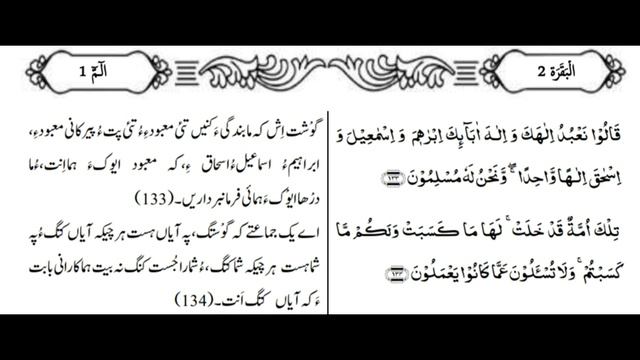 الٓمّٓ 1
الْبَقَرَة 2
قَالُوْا نَعْبُدُ اِلٰهَكَ وَ اِلٰهَ اٰبَآىِٕكَ اِبْرٰهٖمَ وَ اِسْمٰعِیْلَ وَ
اِسْحٰقَ اِلٰهًا وَّاحِدًا ۖۚ وَّنَحْنُ لَهٗ مُسْلِمُوْنَ ۝۱۳۳
تِلْكَ اُمَّةٌ قَدْ خَلَتْ ۚ لَهَا مَا كَسَبَتْ وَلَكُمْ مَّا
كَسَبْتُمْ ۚ وَلَا تُسْـَٔلُوْنَ عَمَّا كَانُوْا یَعْمَلُوْنَ ۝۱۳۴
گوْشت اِش کہ ما بندگی ءَ کنیں تئ معبودءِ ءُ تئ پت ءُ پیرکانی معبودءِ،
ابراہیم ءُ اسماعیل ءُ اسحاق ءِ، کہ معبود ایوک ءَ ہما اِنت، ءُ ما
درُھا ایوْک ءَ ہمائی فرمانبرداریں۔ (133)
اے یک جماعتے کہ گوْستگ، پہ آیاں ہست ہرچیکہ آیاں کتگ ءُ پہ
شما ہست ہرچیکہ شما کتگ، ءُ شمارا جُست کنگ نہ بیت ہما کارانی بابت
ءَ کہ آیاں کتگ اَنت۔ (134)